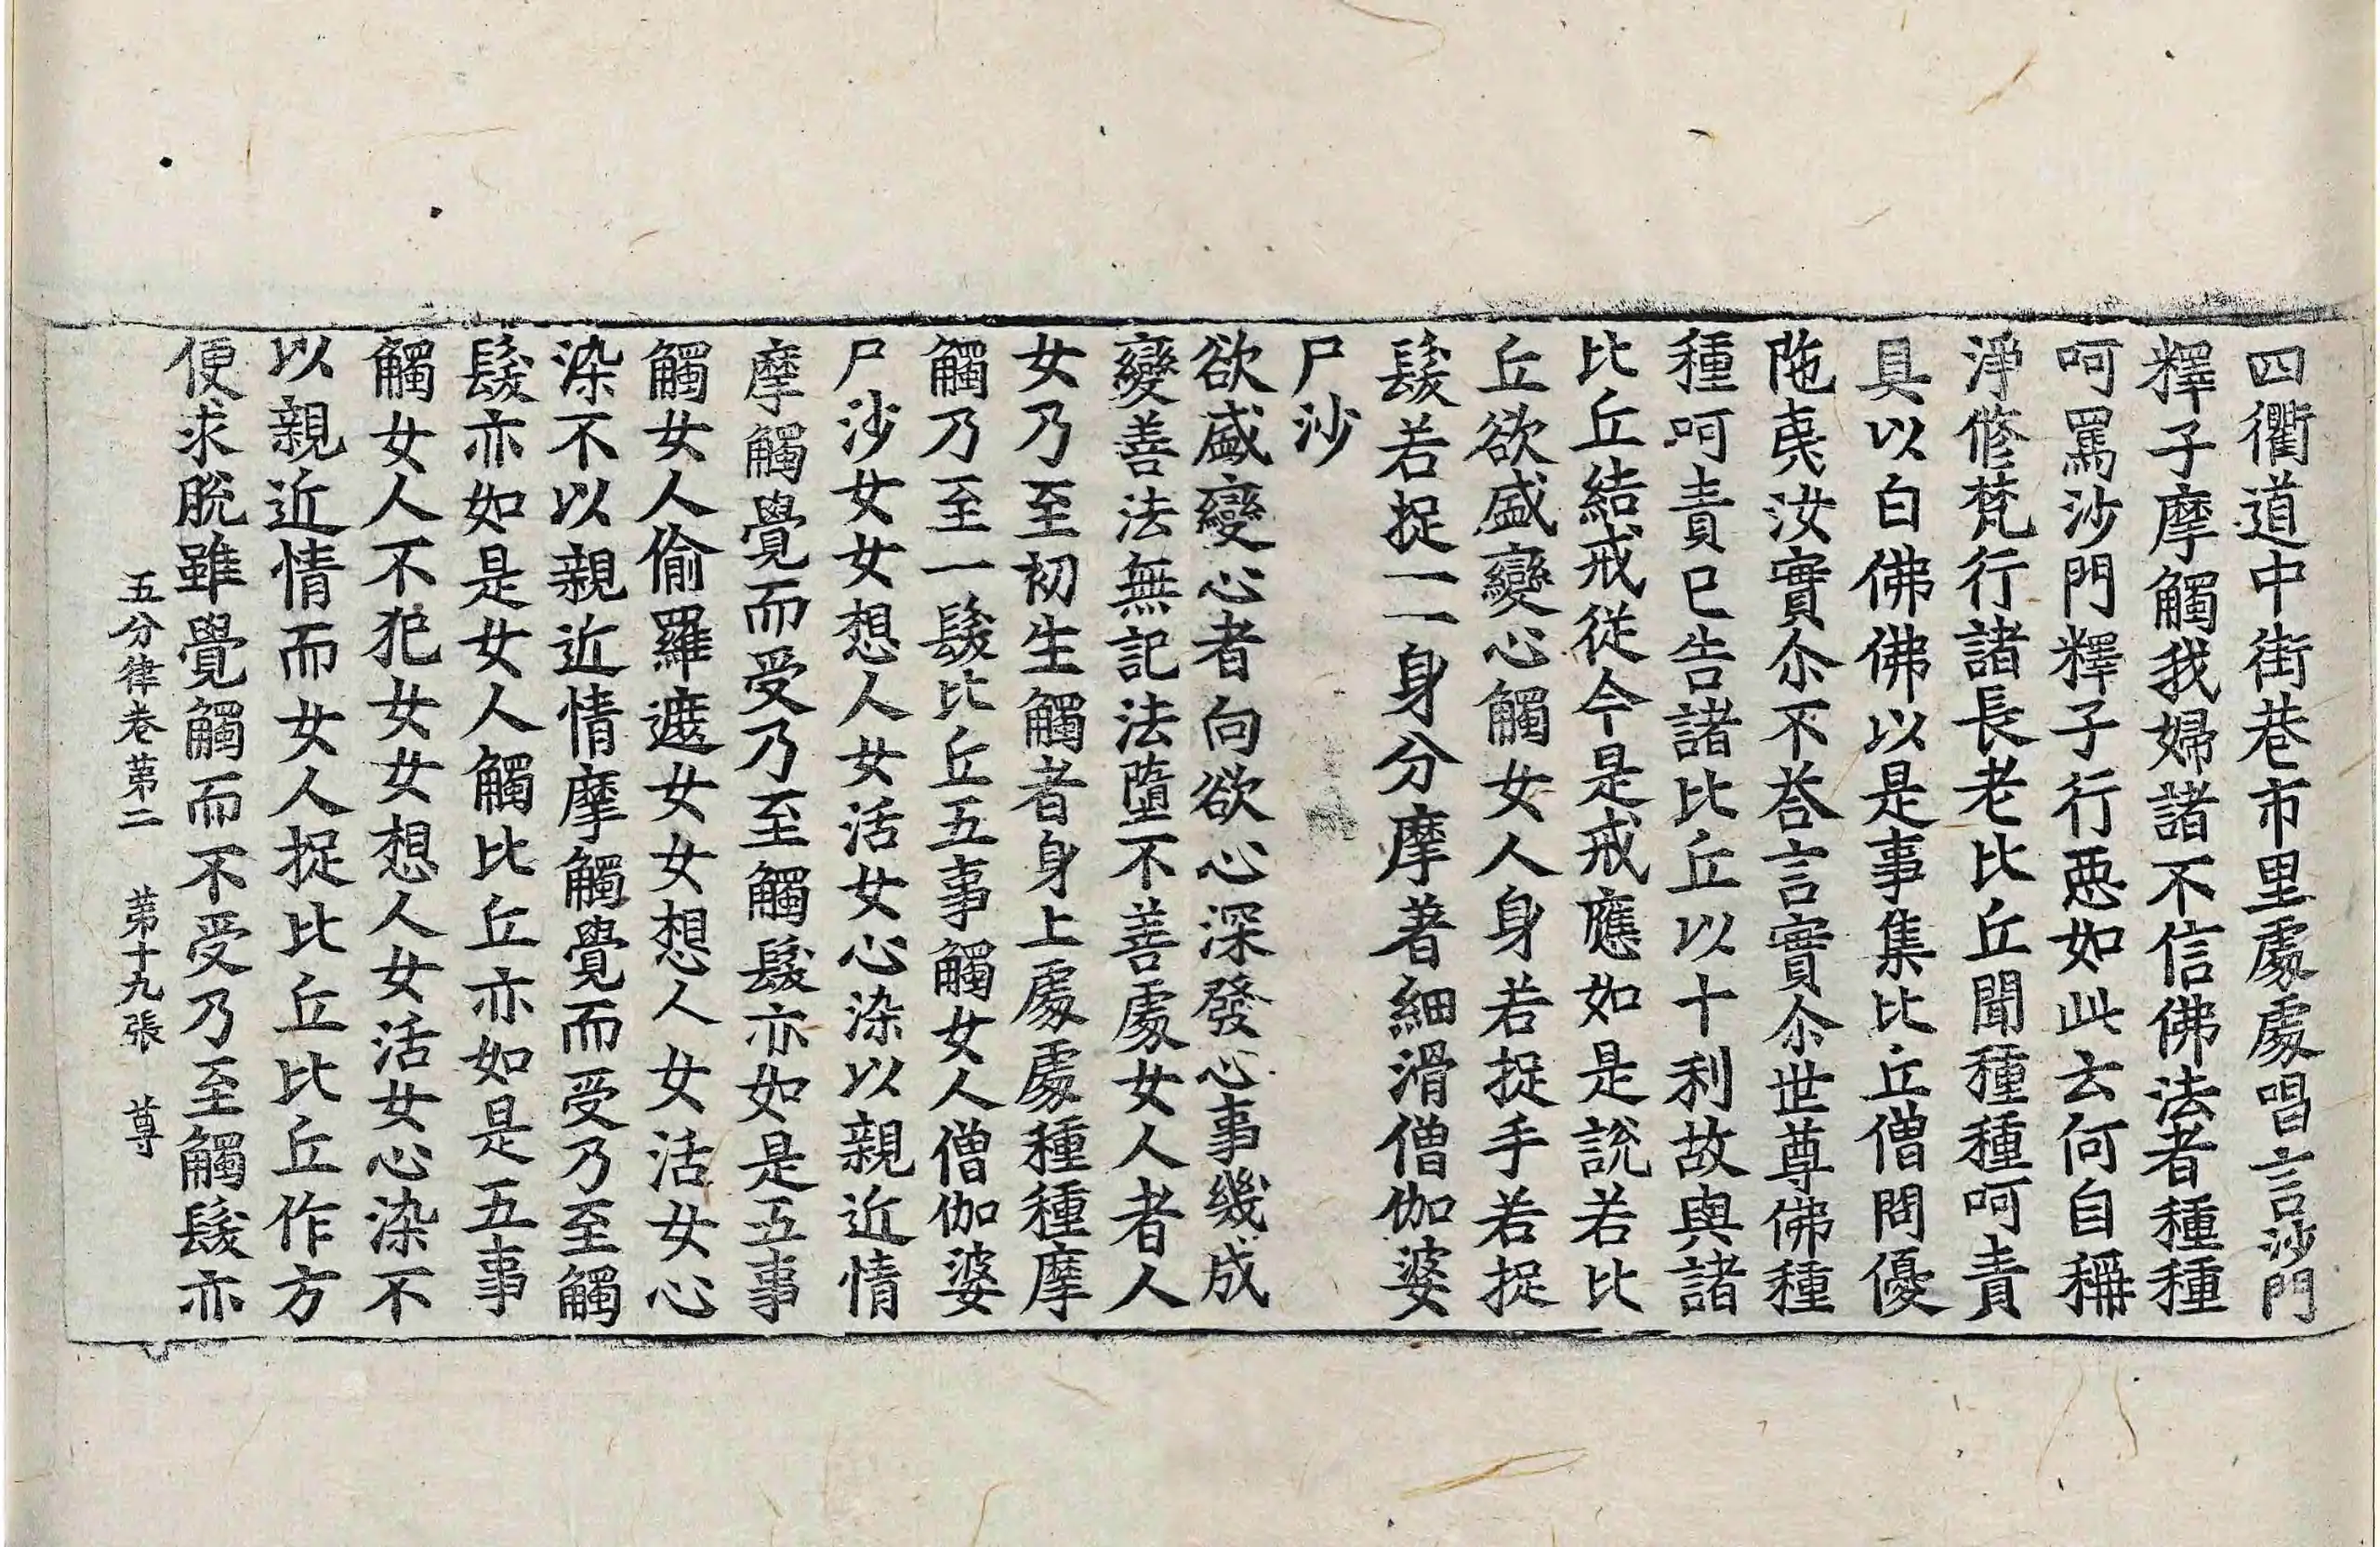 四衢道中街巷市里處處唱言沙門
釋子摩觸我婦諸不信佛法者種種
呵罵沙門釋子行惡如此云何自稱
淨修梵行諸長老比丘聞種種呵責
具以白佛佛以是事集比丘僧問優
陁夷汝實尒不荅言實尒世尊佛種
種呵責已告諸比丘以十利故與諸
比丘結戒從今是戒應如是說若比
丘欲盛變心觸女人身若捉手若捉
髮若捉一一身分摩著細滑僧伽婆
尸沙
欲盛變心者向欲心深發心事幾成
變善法無記法墮不善處女人者人
女乃至初生觸者身上處處種種摩
觸乃至一髮比丘五事觸女人僧伽婆
尸沙女女想人女活女心染以親近情
摩觸覺而受乃至觸髮亦如是五事
觸女人偷羅遮女女想人女活女心
染不以親近情摩觸覺而受乃至觸
髮亦如是女人觸比丘亦如是五事
觸女人不犯女女想人女活女心染不
以親近情而女人捉比丘比丘作方
便求脫雖覺觸而不受乃至觸髮亦
五分律卷第二 第十九張 尊